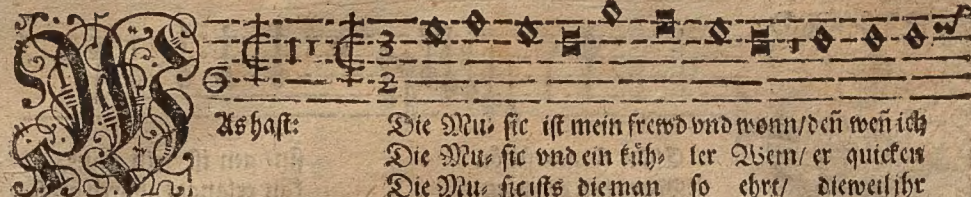 WAs hast:
Die Mu⸗ sic ist mein frewd vnd wonn/ deñ weñ ich
Die Mu⸗ sic vnd ein küh⸗ ler Wein/ er quicken
Die Mu⸗ sic ists die man so ehrt/ dieweil jhr